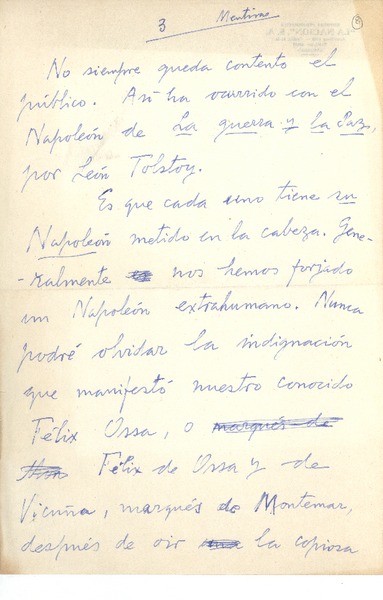 3 Mentiras
"LA NACION", S. A.
No siempre queda contento el
público. Así ha ocurrido con el
Napoleón de La guerra y la Paz,
por León Tolstoy.
Es que cada uno tiene su
Napoleón metido en la cabeza. Gene-
-ralmente nos hemos forjado
un Napoleón extrahumano. Nunca
podré olvidar la indignación
que manifestó nuestro conocido
Félix Ossa, o marqués de
Félix de Ossa y de
Vicuña, marqués de Montemar,
después de oir la copiosa